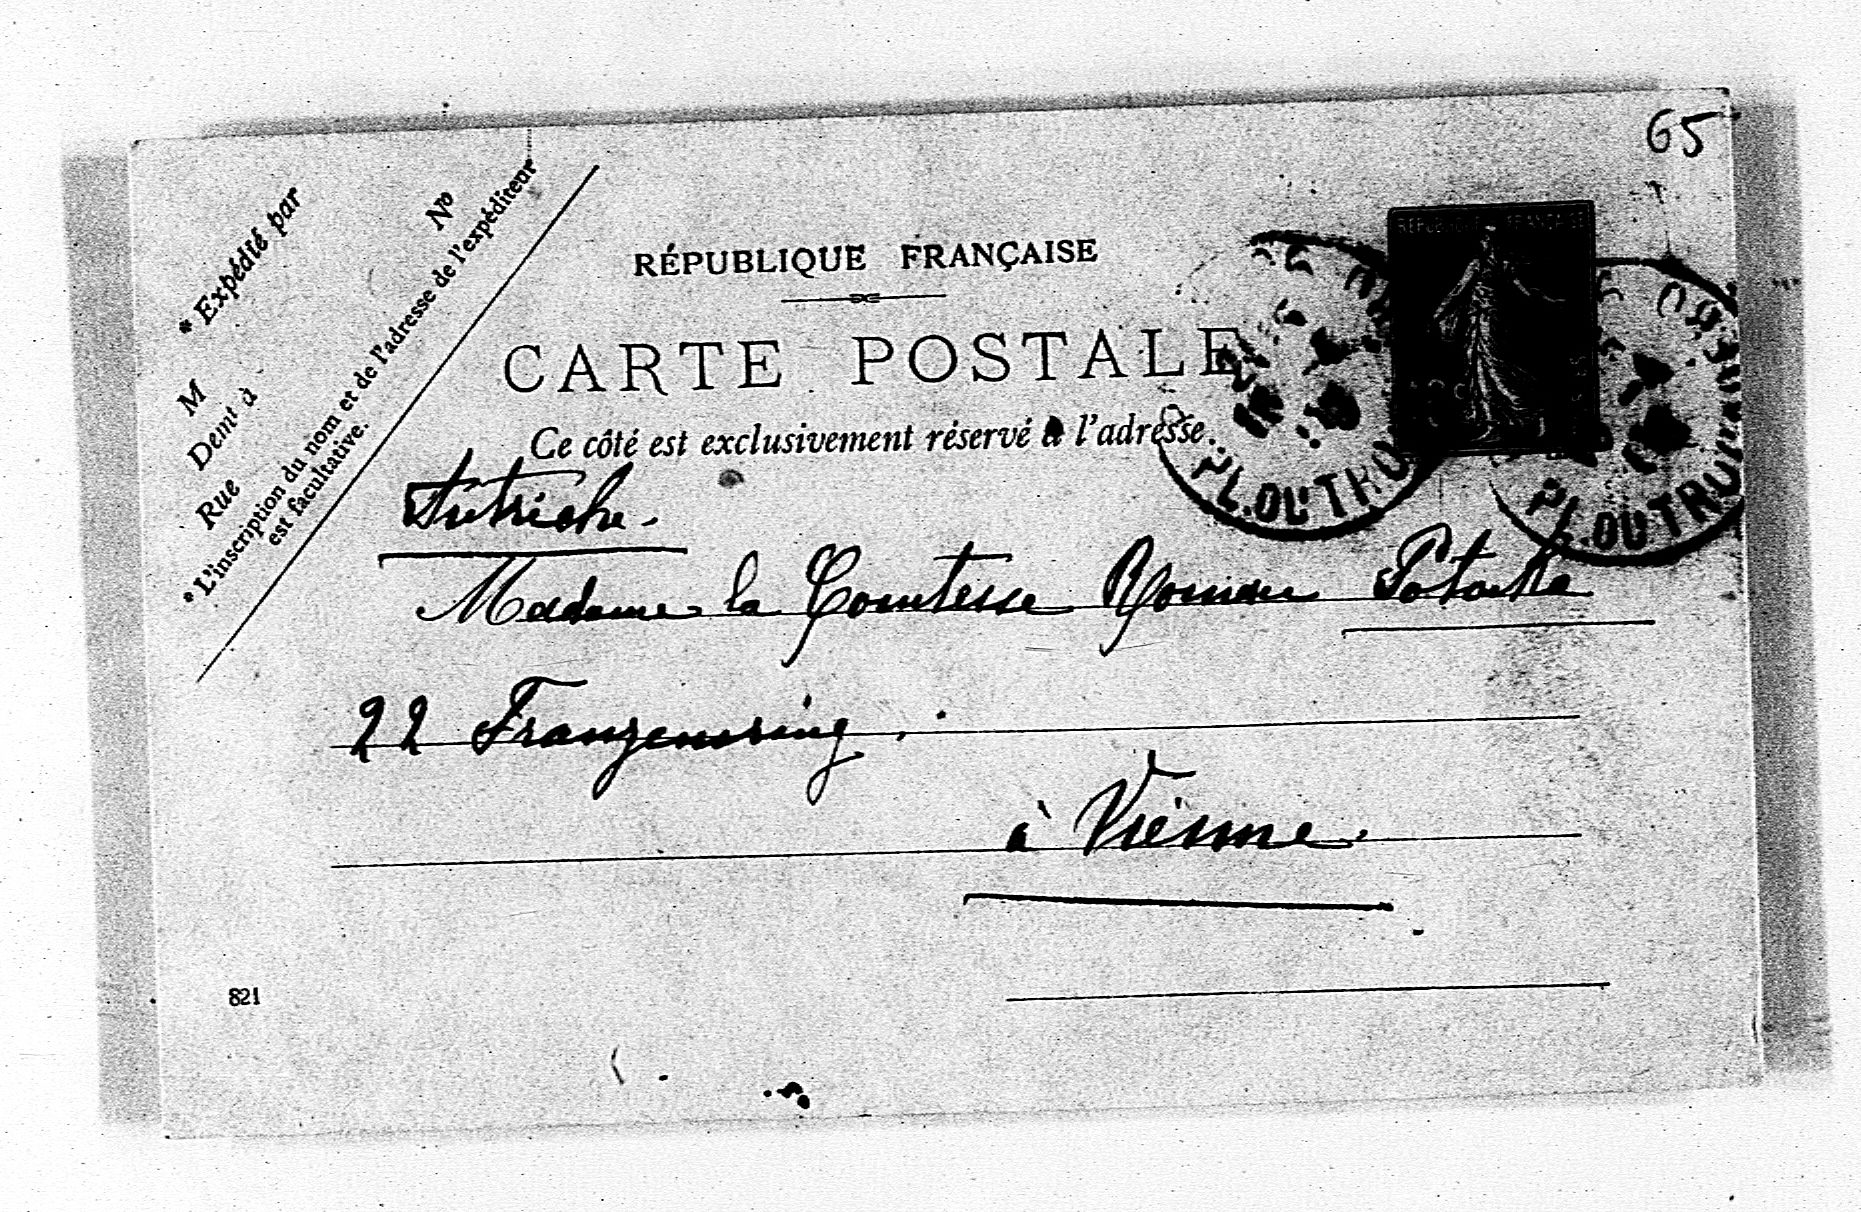 65
* Expédié par
No
M
Demt à
Rue
* L'inscription du nom et de l'adresse de l'expéditeur
est facultative.
RÉPUBLIQUE FRANÇAISE
CARTE POSTALE
Ce côté est exclusivement réservé à l'adresse.
RÉPUBLIQUE FRANÇAISE
PL. DU TRO
PL. DU TRO
Autriche.
Madame la Comtesse Roman Potocka
22 Franzensring.
à Vienne.
821